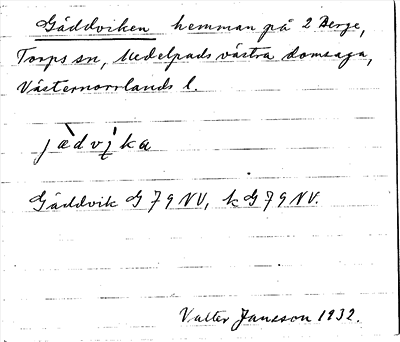 Gäddviken hemman på 2 Berge,
Torps sn, Medelpads västra domsaga,
Västernorrlands l.
jædvika
Gäddvik G 79 NV, kG 79 NV.
Valter Jansson 1932.